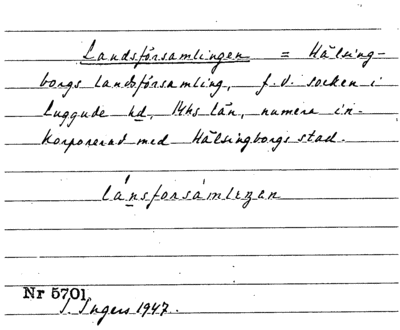 Landsförsamlingen = Hälsing-
borgs landsförsamling, f.d. socken i
Luggude hd, Mhs län, numera in-
korporerad med Hälsingborgs stad.
lánsforsàmlingen
Nr 5701
I. Ingers 1947.